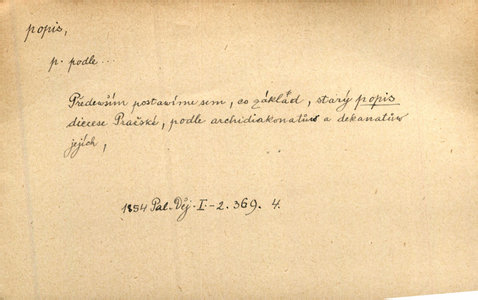 popis,
p. podle...
Předewším postawíme sem, co základ, starý popis
diecese Pražské, podle archidiakonatůw a dekanatůw
jejich,
1854 Pal. Děj. I.-2. 369. 4.